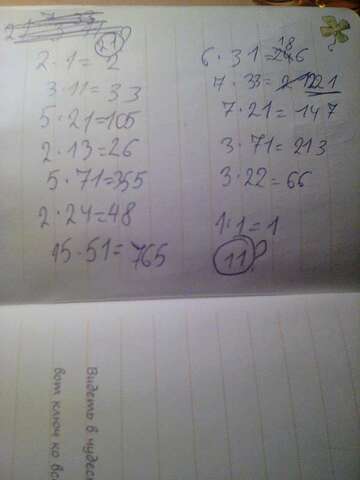 21
2·1=2
3·11=33
5·21=105
2·13=26
5·71=355
2·24=48
15·51=765
18
6·31=
7·33=
221
7·21=147
3·71=213
3·22=66
1·1=1
11
Видеть в чудес
вот ключ ко вс